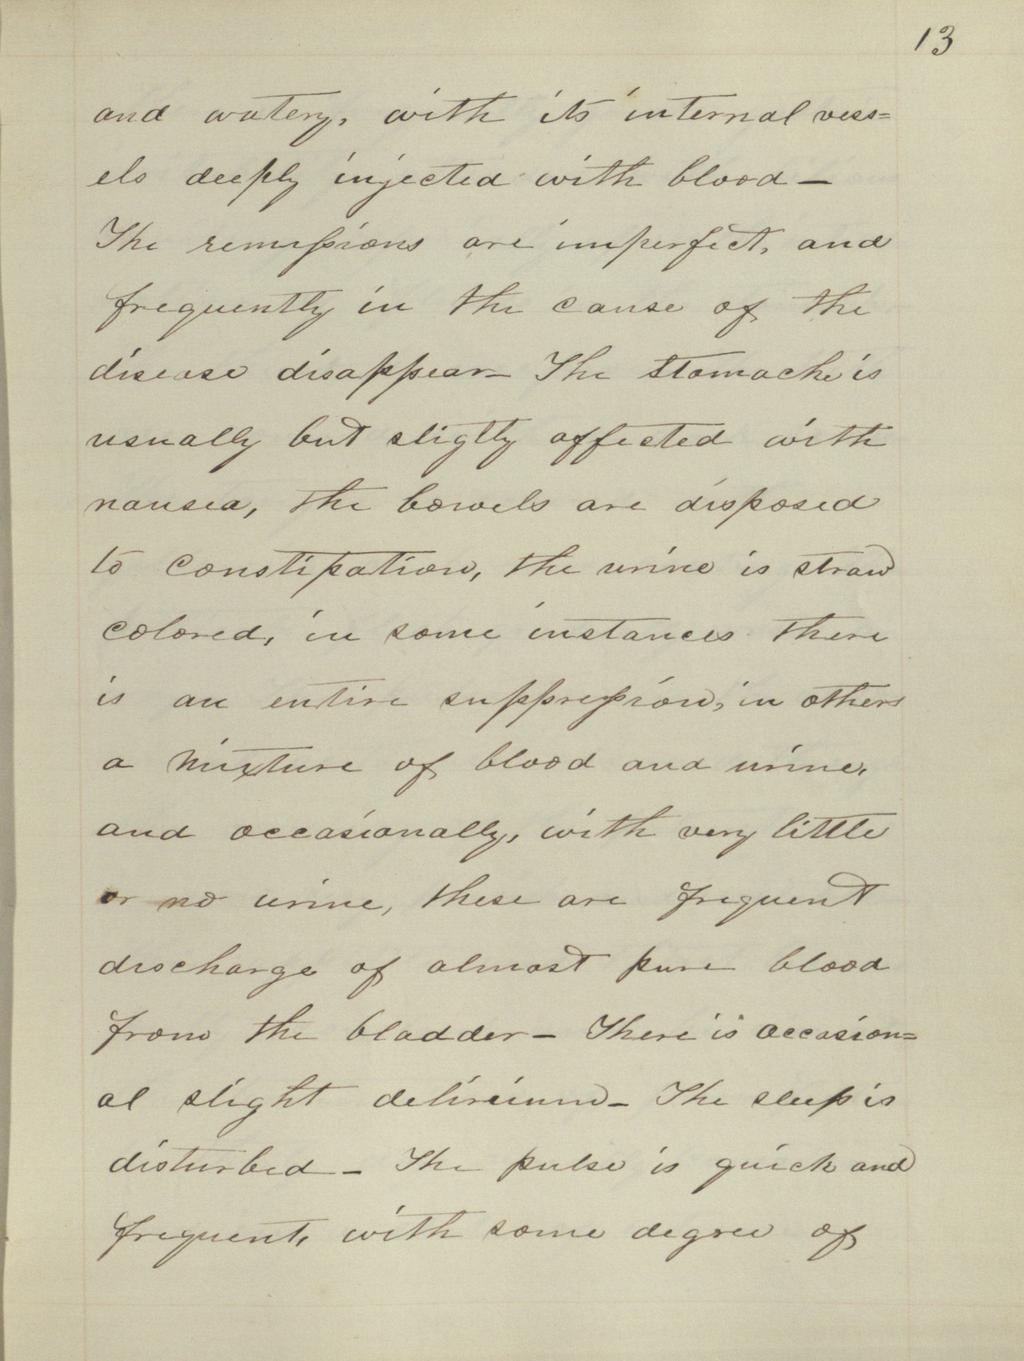 13
and watery, with its internal vess=
els deeply injected with blood –
The remissions are imperfect, and
frequently in the cause of the
disease disappear – The stomache is
usually but sligtly affected with
nausea, the bowels are disposed
to constipation, the urine is straw
colored, in some instances there
is an entire suppression, in others
a mixture of blood and urine,
and occasionally, with very little
or no urine, these are frequent
discharge of almost pure blood
from the bladder – There is occasion=
al slight delirium – The sleep is
disturbed – The pulse is quick and
frequent, with some degree of